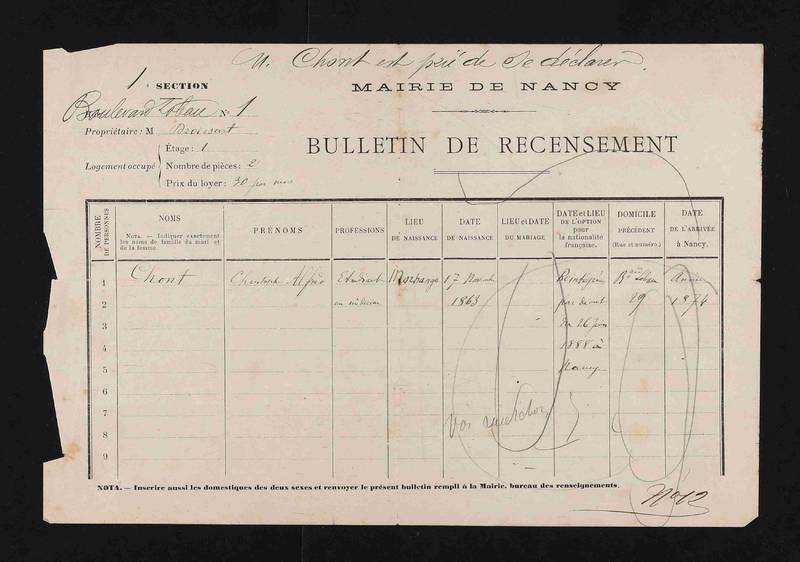 M. Chont est prié de se déclarer.
1e SECTION
MAIRIE DE NANCY
Boulevard Lobau No 1
Propriétaire: M
BULLETIN DE RECENSEMENT
Logement occupé
Étage: 1
Nombre de pièces: 2
Prix du loyer: 30 par mois
NOMBRE DE PERSONNES
NOMS
NOTA. — Indiquer exactement les noms de famille du mari et de la femme.
PRÉNOMS
PROFESSIONS
LIEU DE NAISSANCE
DATE DE NAISSANCE
LIEU et DATE DU MARIAGE
DATE et LIEU DE L'OPTION pour la nationalité française.
DOMICILE PRÉCÉDENT (Rue et numéro.)
DATE DE L'ARRIVÉE à Nancy.
1 Chont Christophe Alfred Etudiant Morhange 17 Novemb Réintégré Bard Lobau Année
2 en médecine 1863 par décret 29 1874
3 du 26 juin
4 1888 à
5 Nancy
6
7
8
9
NOTA. — Inscrire aussi les domestiques des deux sexes et renvoyer le présent bulletin rempli à la Mairie, bureau des renseignements.
No 12